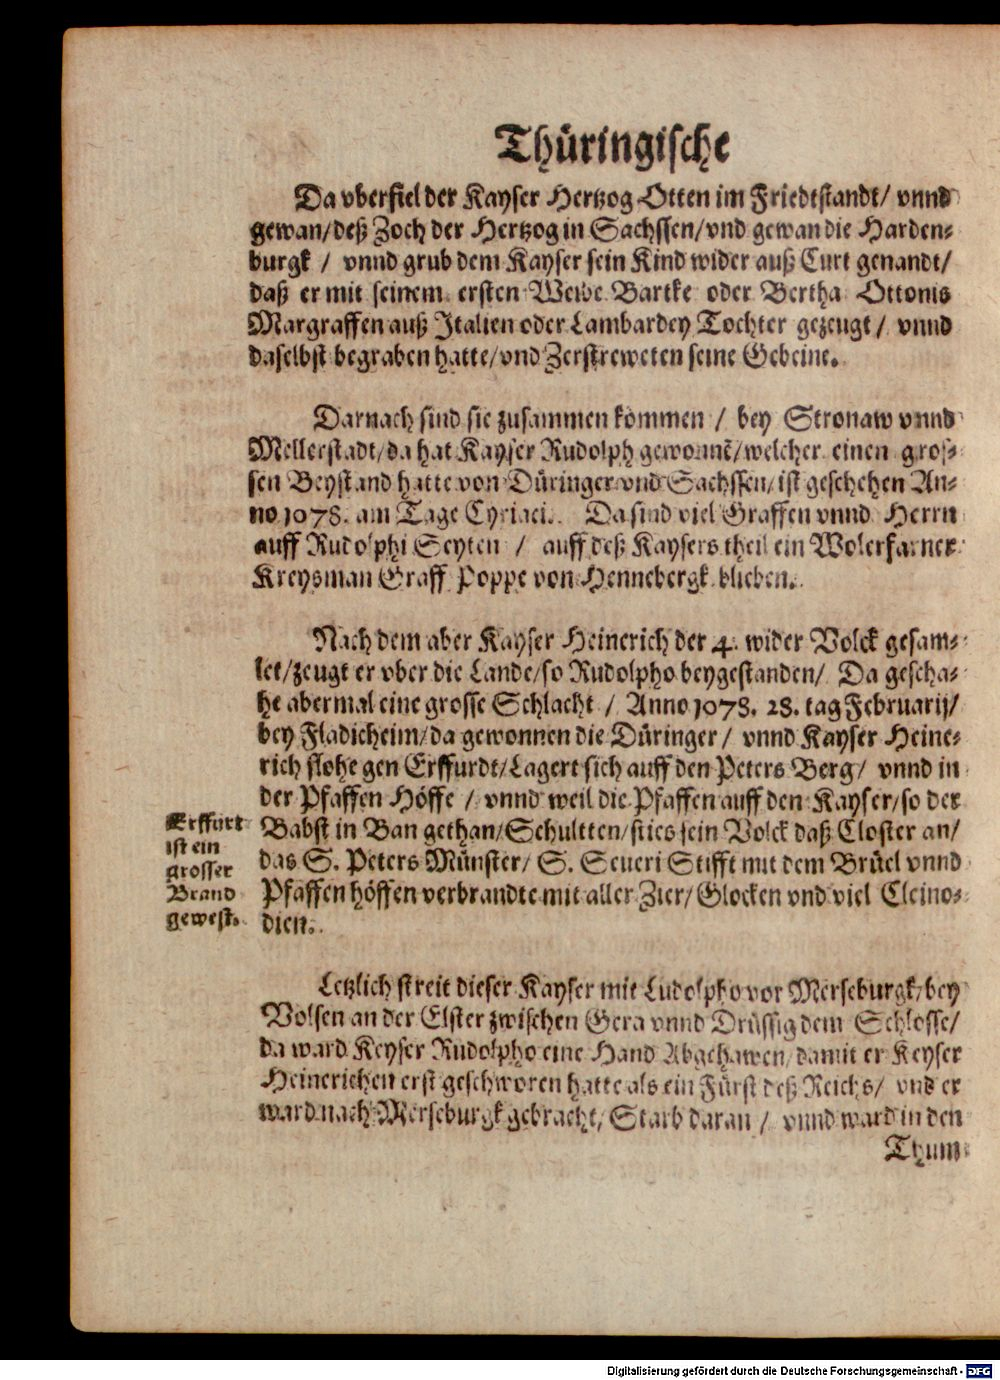 Thüringische
Da vberfiel der Kayser Hertzog Otten im Friedtstandt/ vnnd
gewan/deß Zoch der Hertzog in Sachssen/vnd gewan die Harden-
burgk / vnnd grub dem Kayser sein Kind wider auß Curt genandt/
daß er mit seinem ersten Weibe Bartke oder Bertha Ottonis
Margraffen auß Italien oder Lambardey Tochter gezeugt / vnnd
daselbst begraben hatte/vnd Zerstreweten seine Gebeine.
Darnach sind sie zusammen kommen / bey Stronaw vnnd
Mellerstadt/da hat Kayser Rudolph gewonnē/welcher einen gros-
sen Beystand hatte von Düringer vnd Sachssen/ist geschehen An-
no 1078. am Tage Cyriaci. Da sind viel Graffen vnnd Herrn
auff Rudolphi Seyten / auff deß Kaysers theil ein Wolerfarner
Kreysman Graff Poppe von Hennebergk blieben.
Nach dem aber Kayser Heinerich der 4. wider Volck gesam-
let/zeugt er vber die Lande/so Rudolpho beygestanden/ Da gescha-
he abermal eine grosse Schlacht / Anno 1078. 28. tag Februarij/
bey Fladicheim/da gewonnen die Düringer / vnnd Kayser Heine-
rich flohe gen Erffurdt/Lagert sich auff den Peters Berg/ vnnd in
der Pfaffen Höffe / vnnd weil die Pfaffen auff den Kayser/so der
Babst in Ban gethan/Schultten/sties sein Volck daß Closter an/
das S. Peters Münster/ S. Seueri Stifft mit dem Brüel vnnd
Pfaffen höffen verbrandte mit aller Zier/Glocken vnd viel Cleino-
dien.
Erffurt
ist ein
grosser
Brand
gewest.
Letzlich streit dieser Kayser mit Ludolpho vor Merseburgk/bey
Volsen an der Elster zwischen Gera vnnd Drüssig dem Schlosse/
da ward Keyser Rudolpho eine Hand Abgehawen/damit er Keyser
Heinerichen erst geschworen hatte als ein Fürst deß Reichs/ vnd er
ward nach Merseburgk gebracht, Starb daran / vnnd ward in den
Thum-
Digitalisierung gefördert durch die Deutsche Forschungsgemeinschaft - DFG